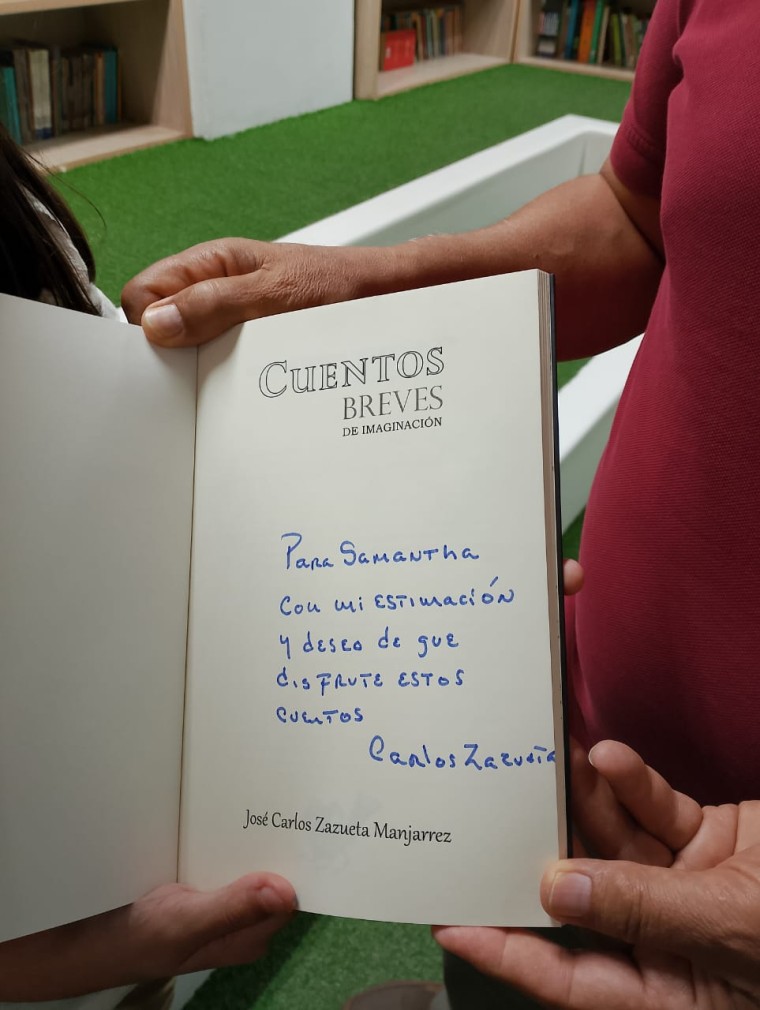 CUENTOS
BREVES
DE IMAGINACIÓN
Para Samantha
con mi estimación
y deseo de que
disfrute estos
cuentos
Carlos Zazueta
José Carlos Zazueta Manjarrez